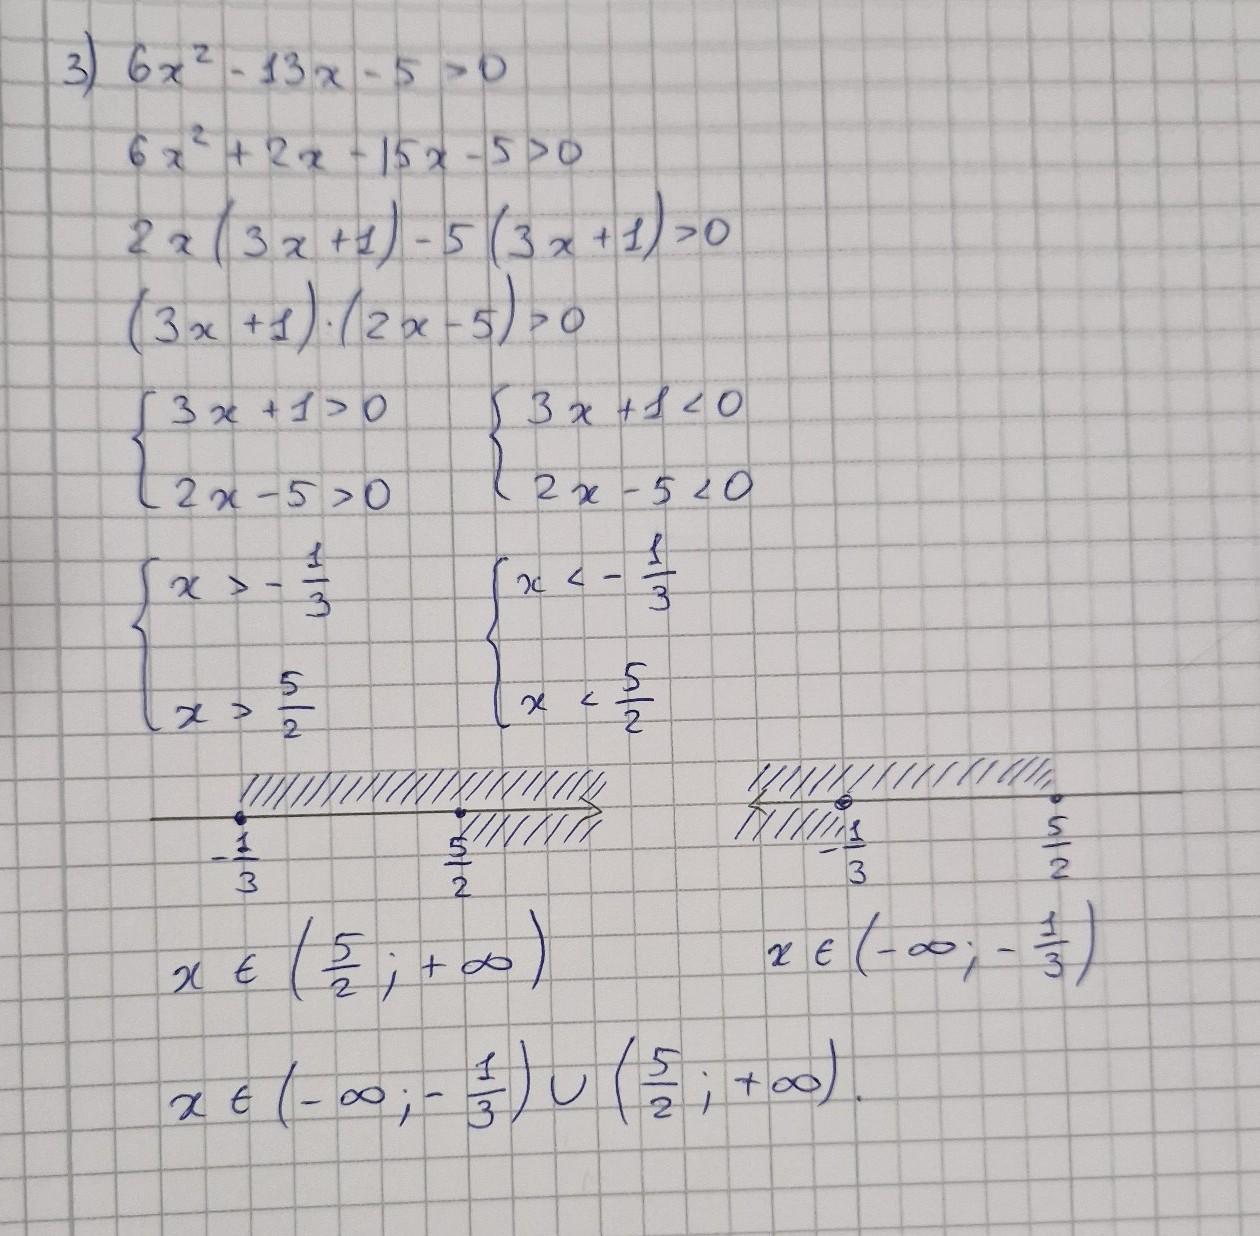 3) 6x² - 13x - 5 > 0
6x² + 2x - 15x - 5 > 0
2x(3x + 1) - 5(3x + 1) > 0
(3x + 1) · (2x - 5) > 0
{ 3x + 1 > 0 { 3x + 1 < 0
2x - 5 > 0 2x - 5 < 0
{ x > - 1/3 { x < - 1/3
x > 5/2 x < 5/2
- 1/3 5/2 - 1/3 5/2
x ∈ (5/2 ; + ∞) x ∈ (- ∞; - 1/3)
x ∈ (- ∞; - 1/3) ∪ (5/2 ; + ∞).